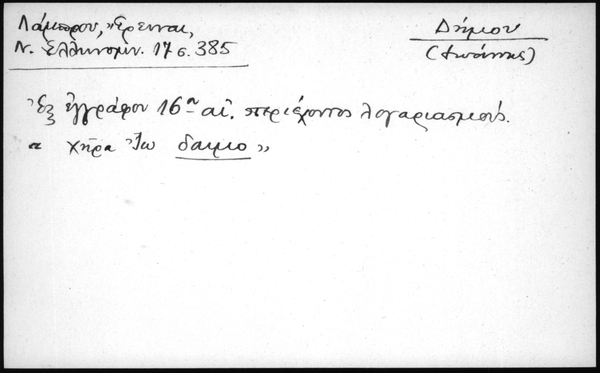 Λάμπρου, Ἔρευναι,
Ν. Ἑλληνομν. 17 σ. 385
Δήμου
(Ἰωάννης)
Ἐξ ἐγγράφου 16ου αἰ. περιέχοντος λογαριασμούς.
« χήρα Ἰω δαμο »